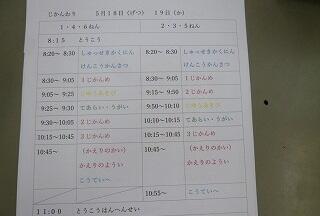 じかんわり　5月18日（げつ）　19日（か）
1・4・6ねん　2・3・5ねん
8:15　とうこう
8:20～ 8:30　しゅっせきかくにん　8:20～ 8:30　しゅっせきかくにん
けんこうかんさつ　けんこうかんさつ
8:30～ 9:05　1じかんめ　8:30～ 9:05　1じかんめ
9:05～ 9:25　じゆうあそび　9:15～ 9:50　2じかんめ
9:25～ 9:30　てあらい・うがい　9:50～10:10　じゆうあそび
9:30～10:05　2じかんめ　10:10～10:15　てあらい・うがい
10:15～10:45　3じかんめ　10:15～10:45　3じかんめ
10:45～　（かえりのかい）　10:45～　（かえりのかい）
かえりのようい　かえりのようい
こうていへ
10:55～　こうていへ
11:00　とうこうはんへんせい